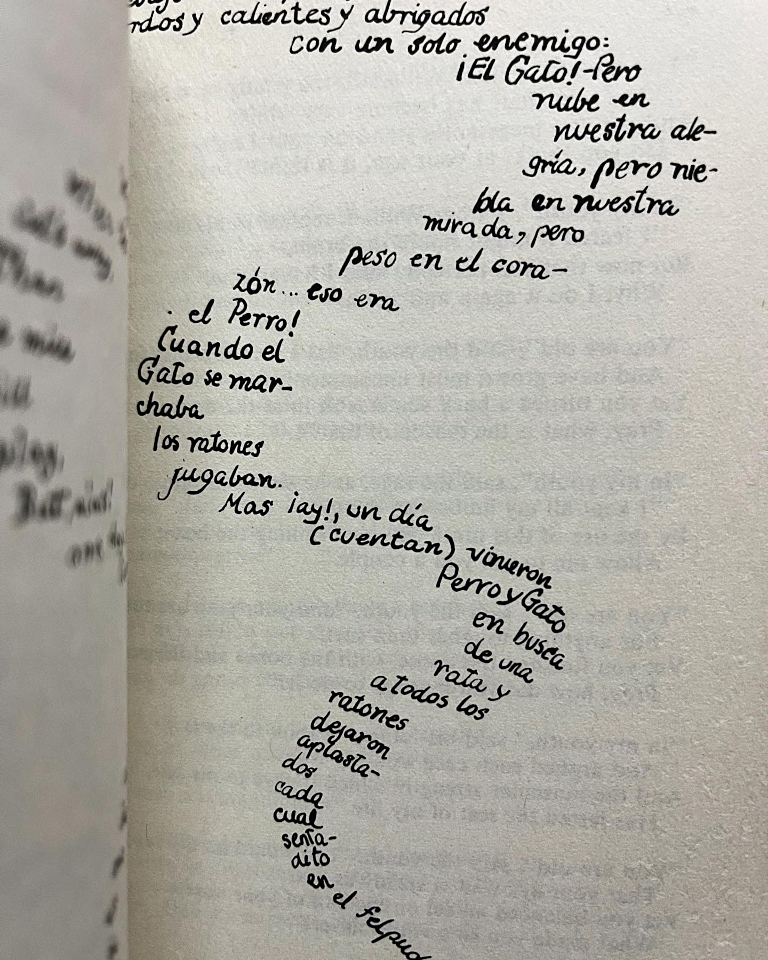 y calientes y abrigados
con un solo enemigo:
¡El Gato!-Pero
nube en
nuestra ale-
gría, pero nie-
bla en nuestra
mirada, pero
peso en el cora-
zón... eso era
el Perro!
Cuando el
Gato se mar-
chaba
los ratones
jugaban.
Mas ¡ay!, un día
(cuentan) vinieron
Perro y Gato
en busca
de una
rata y
a todos los
ratones
dejaron
aplasta-
dos
cada
cual
senta-
dito
en el